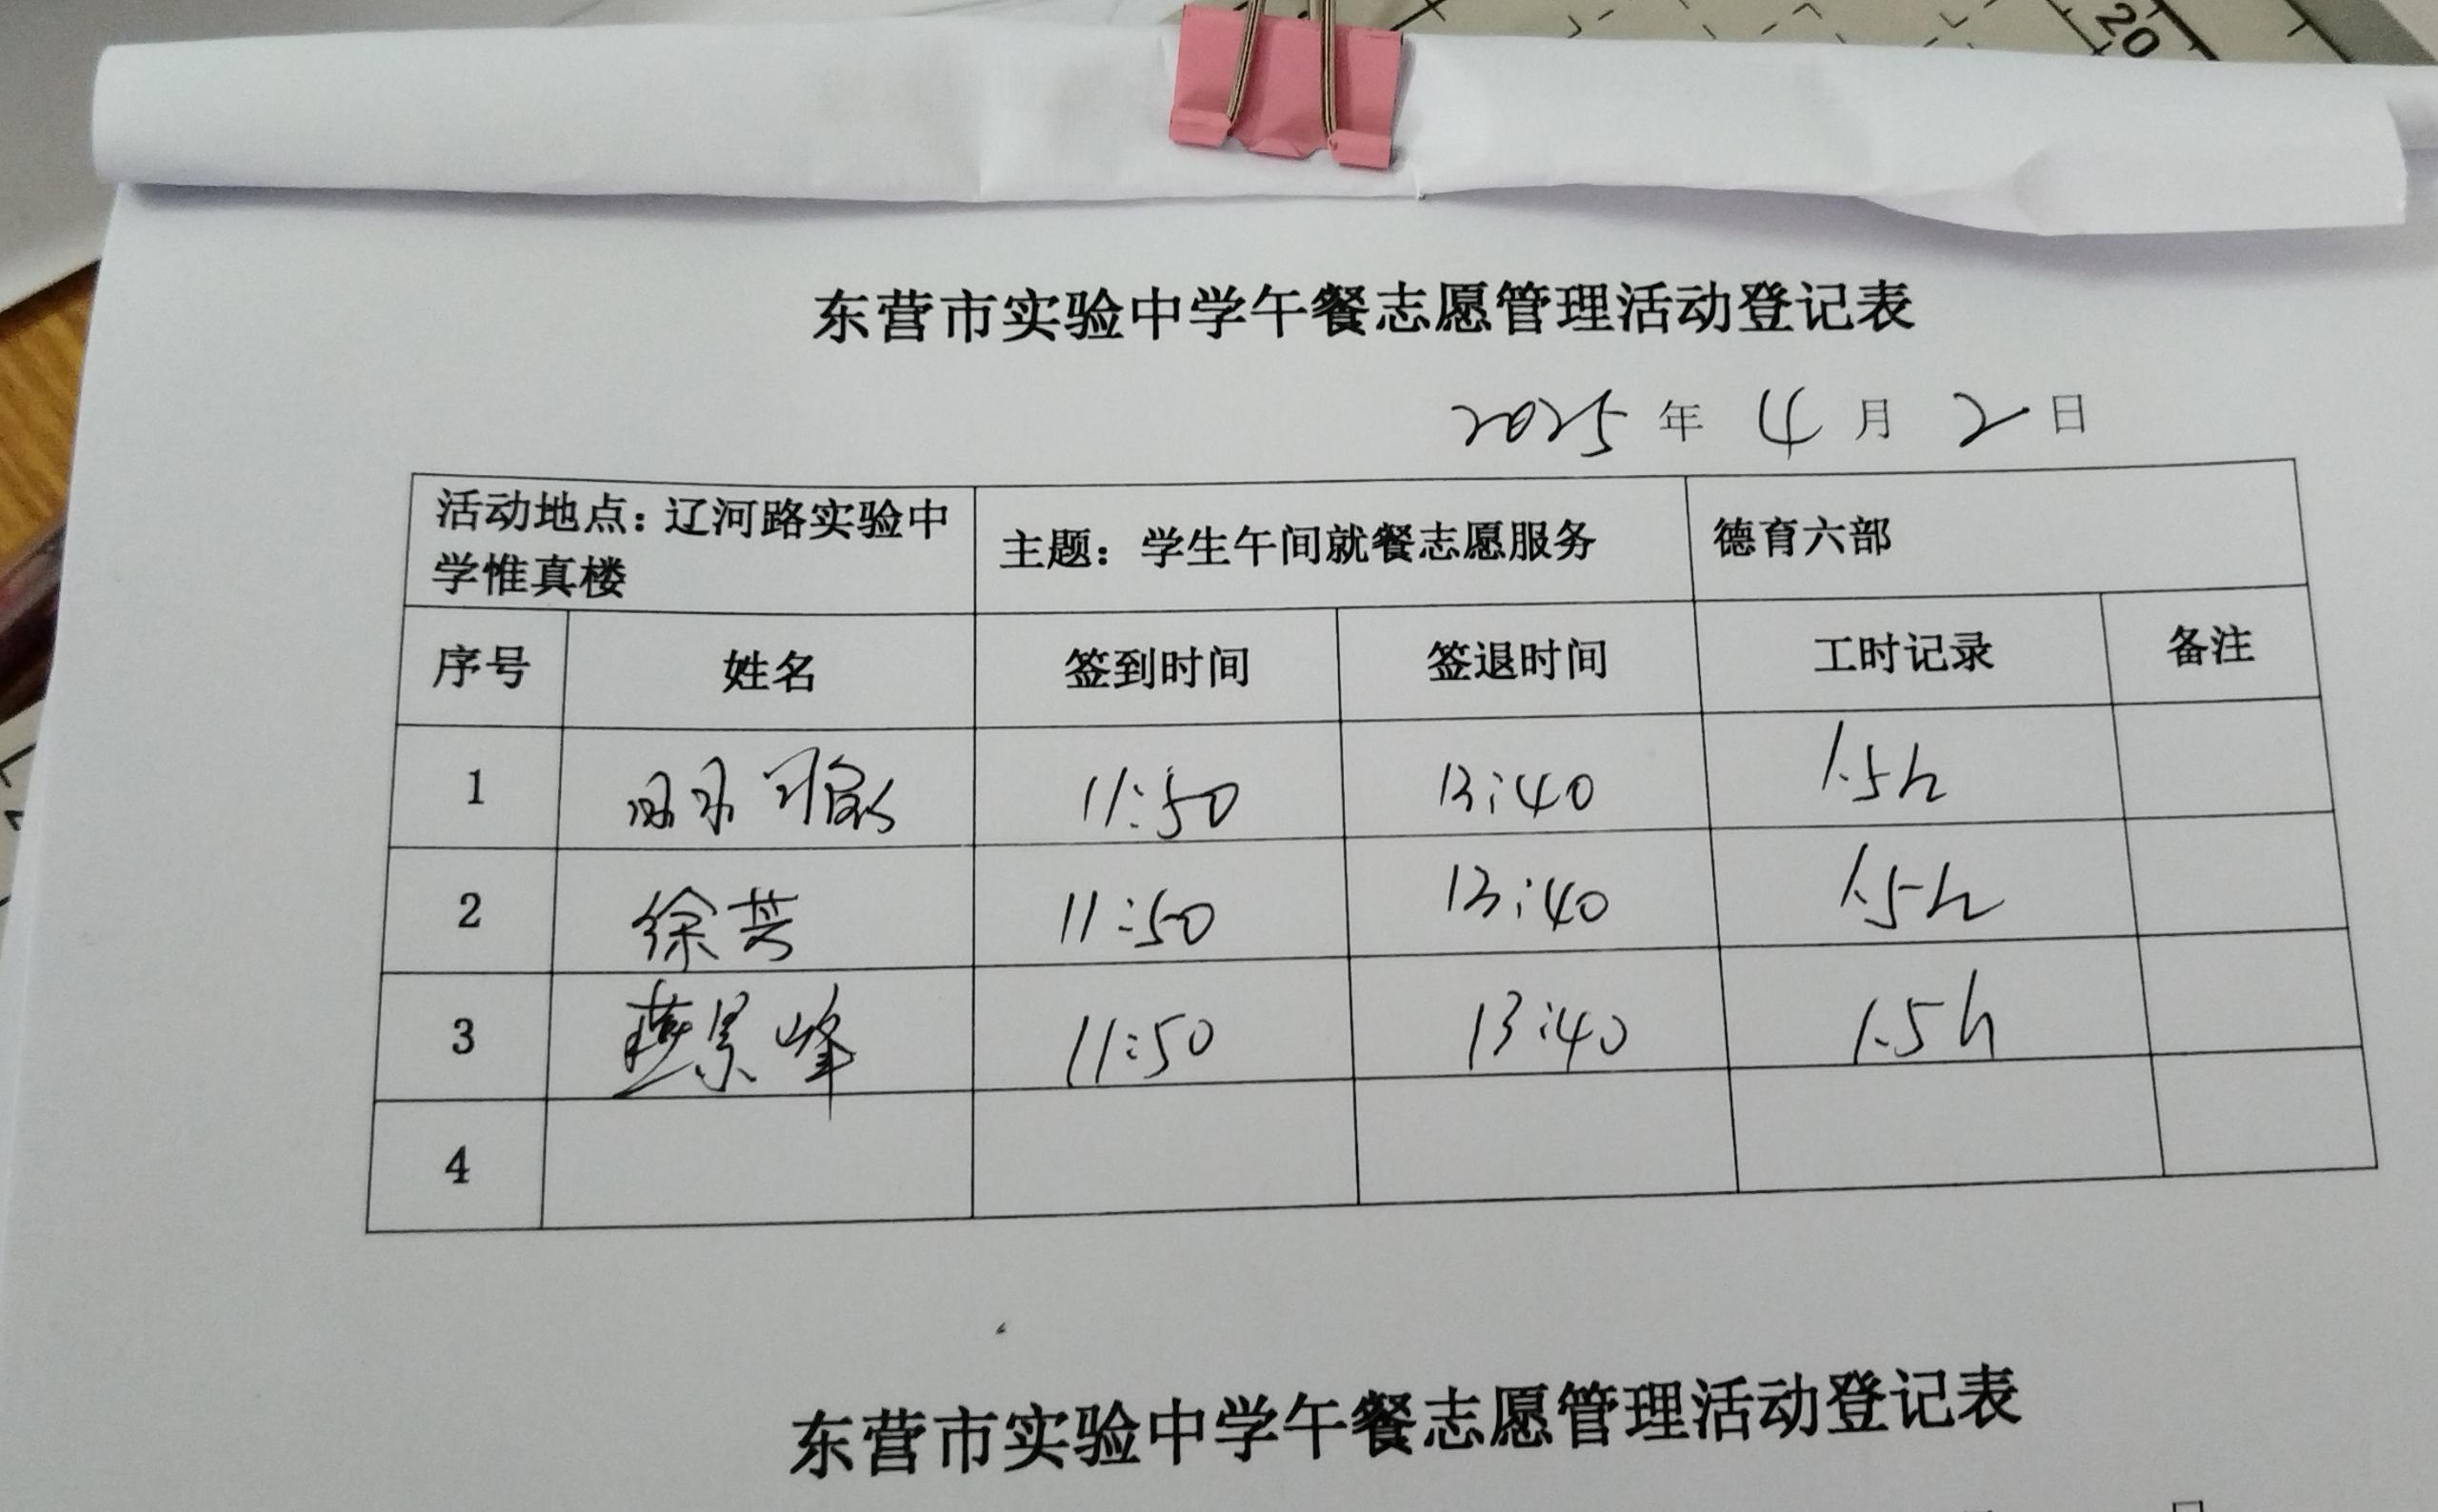 20
东营市实验中学午餐志愿管理活动登记表
2025 年 4 月 2 日
活动地点：辽河路实验中学惟真楼 主题：学生午间就餐志愿服务 德育六部
序号 姓名 签到时间 签退时间 工时记录 备注
1 11:50 13:40 1.5h
2 徐芸 11:50 13:40 1.5h
3 燕景峰 11:50 13:40 1.5h
4
东营市实验中学午餐志愿管理活动登记表
日